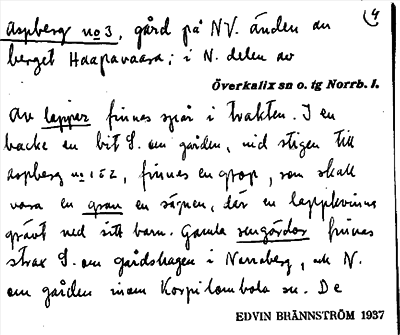 4
Aspberg no 3, gård på NV. änden av
berget Haapavaara; i N. delen av
Överkalix sn o. tg Norrb. l.
Av lappar finnas spår i trakten. I en
backe en bit S. om gården, vid stigen till
Aspberg no 1 o 2, finnes en grop, som skall
vara en grav en sägnen, där en lappkvinna
grävt ned sitt barn. Gamla rengärdor finnas
strax S. om gårdshagen i Narraberg, och N.
om gården inom Korpilombolo sn. De
EDVIN BRÄNNSTRÖM 1937